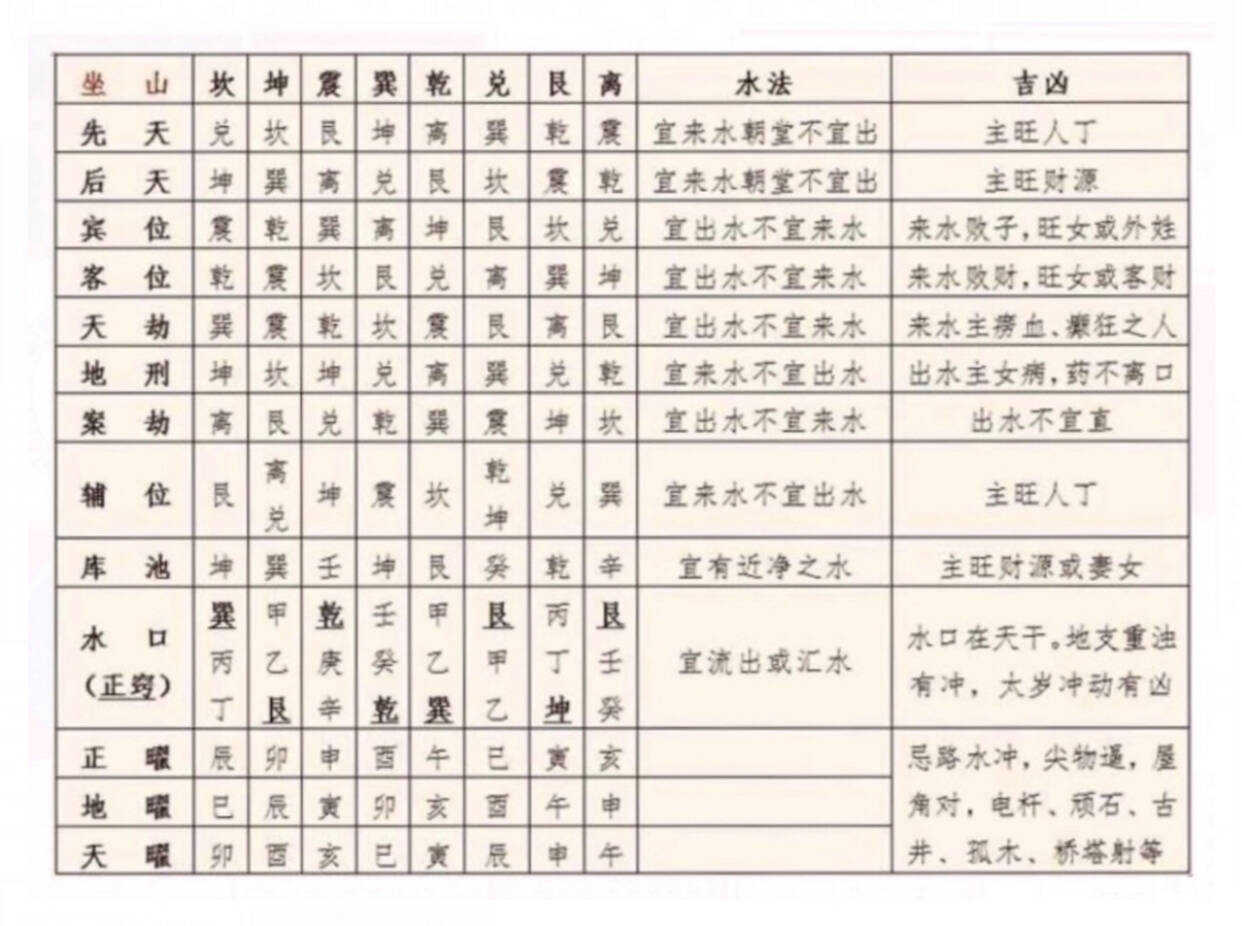 坐 山 坎 坤 震 巽 乾 兑 艮 离 水法 吉凶
先 天 兑 坎 艮 坤 离 巽 乾 震 宜来水朝堂不宜出 主旺人丁
后 天 坤 巽 离 兑 艮 坎 震 乾 宜来水朝堂不宜出 主旺财源
宾 位 震 乾 巽 离 坤 艮 坎 兑 宜出水不宜来水 来水败子，旺女或外姓
客 位 乾 震 坎 艮 兑 离 巽 坤 宜出水不宜来水 来水败财，旺女或客财
天 劫 巽 震 乾 坎 震 艮 离 艮 宜出水不宜来水 来水主痨血、癫狂之人
地 刑 坤 坎 坤 兑 离 巽 兑 乾 宜来水不宜出水 出水主女病，药不离口
案 劫 离 艮 兑 乾 巽 震 坤 坎 宜出水不宜来水 出水不宜直
辅 位 艮 离兑 坤 震 坎 乾坤 兑 巽 宜来水不宜出水 主旺人丁
库 池 坤 巽 壬 坤 艮 癸 乾 辛 宜有近净之水 主旺财源或妻女
水 口（正窍） 巽丙丁 甲乙艮 乾庚辛 壬癸乾 甲乙巽 艮甲乙 丙丁坤 艮壬癸 宜流出或汇水 水口在天干。地支重浊
有冲，太岁冲动有凶
正 曜 辰 卯 申 酉 午 巳 寅 亥 忌路水冲，尖物逼，屋
地 曜 巳 辰 寅 卯 亥 酉 午 申 角对，电杆、顽石、古
天 曜 卯 酉 亥 巳 寅 辰 申 午 井、孤木、桥塔射等